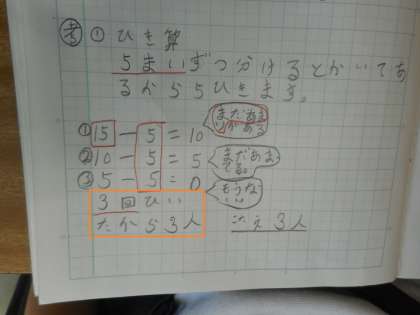 考 ① ひき算
5まいずつ分けるとかいてあ
るから5ひきます。
① 15－5＝10 まだあまりがある
② 10－5＝5 まだあまってる。
③ 5－5＝0 もうない
3回ひい
たから3人
こたえ3人